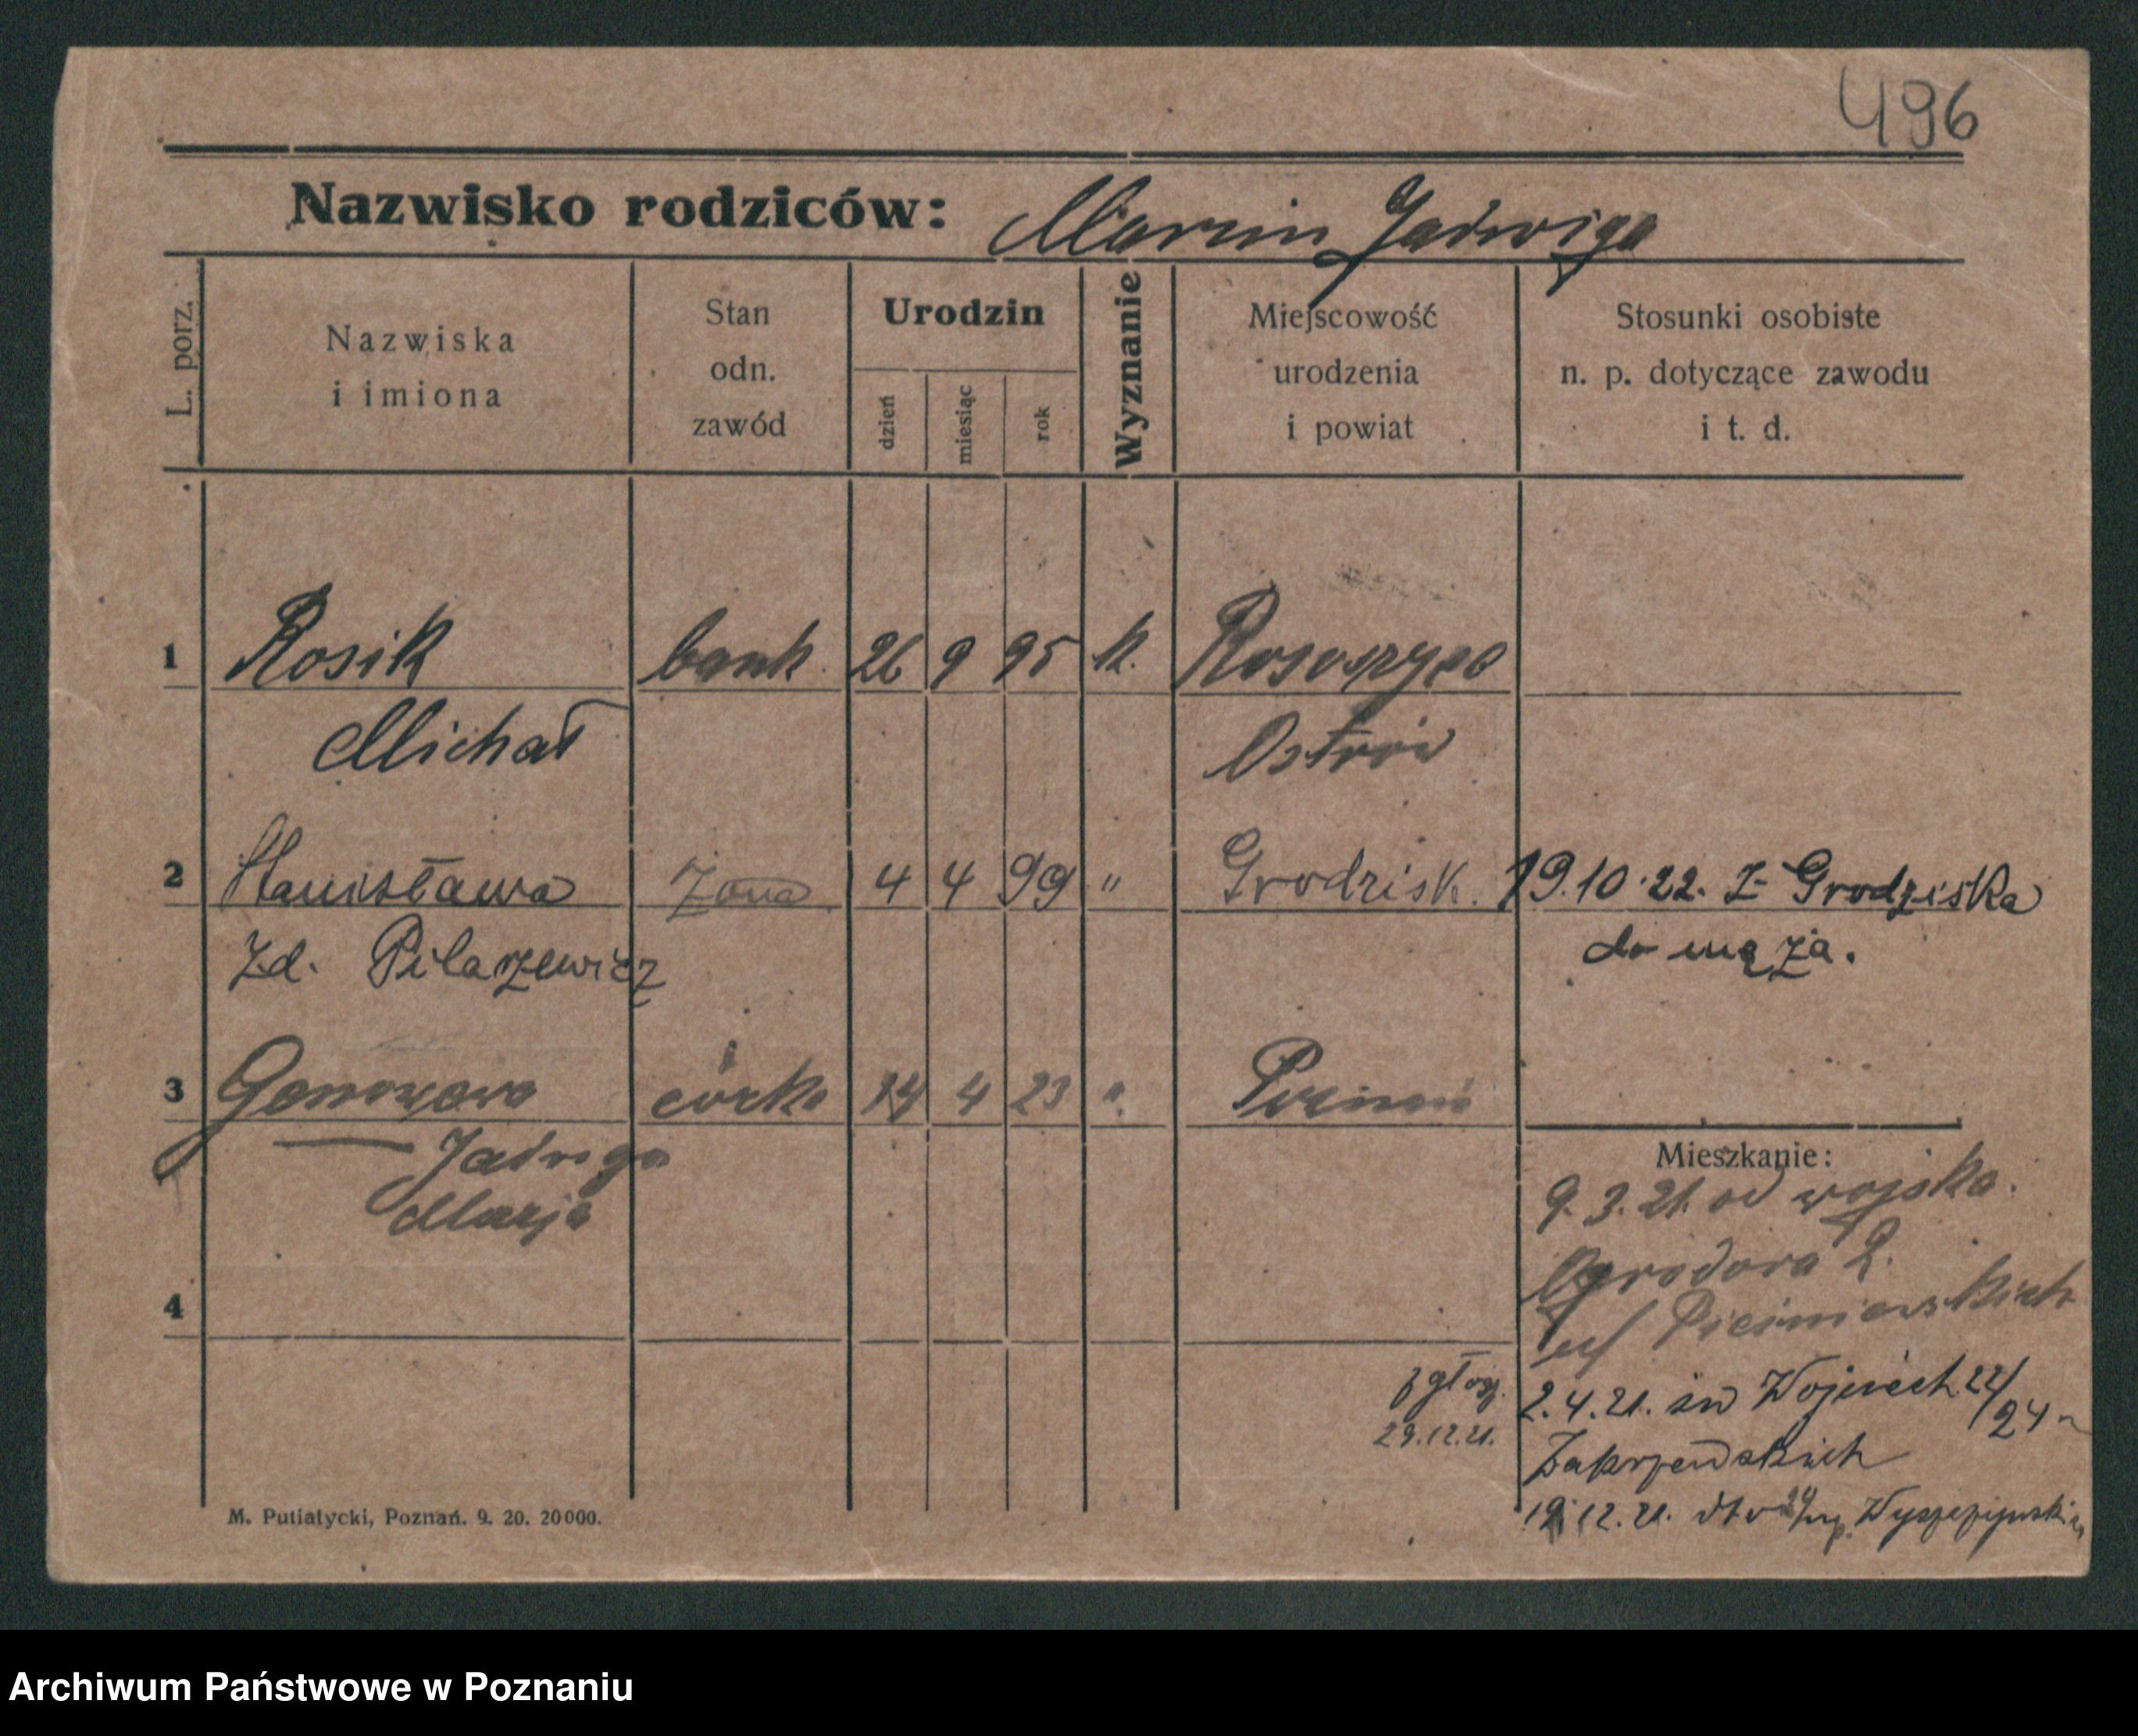 496
Nazwisko rodziców: Marcin Jadwiga
L. porz.
Nazwiska i imiona
Stan odn. zawód
Urodzin
dzień
miesiąc
rok
Wyznanie
Miejscowość urodzenia i powiat
Stosunki osobiste n. p. dotyczące zawodu i t. d.
1 Rosik bank. 26 9 95 k. Rososzyca
Michał Ostrów
2 Stanisława żona 4 4 99 " Grodzisk. 19.10.22. z Grodziska
Zd. Pilarzewicz do męża.
3 Genowewa córka 14 4 23 " Poznań
Jadwiga
Marja
Mieszkanie:
9.3.21. od wojska.
Ogrodowa 2.
4
zgłosz. 2.4.21. św Wojciech 22/24
29.12.21. Zakrzewskich
19.12.21. dto
M. Putiatycki, Poznań. 9. 20. 20000.
Archiwum Państwowe w Poznaniu